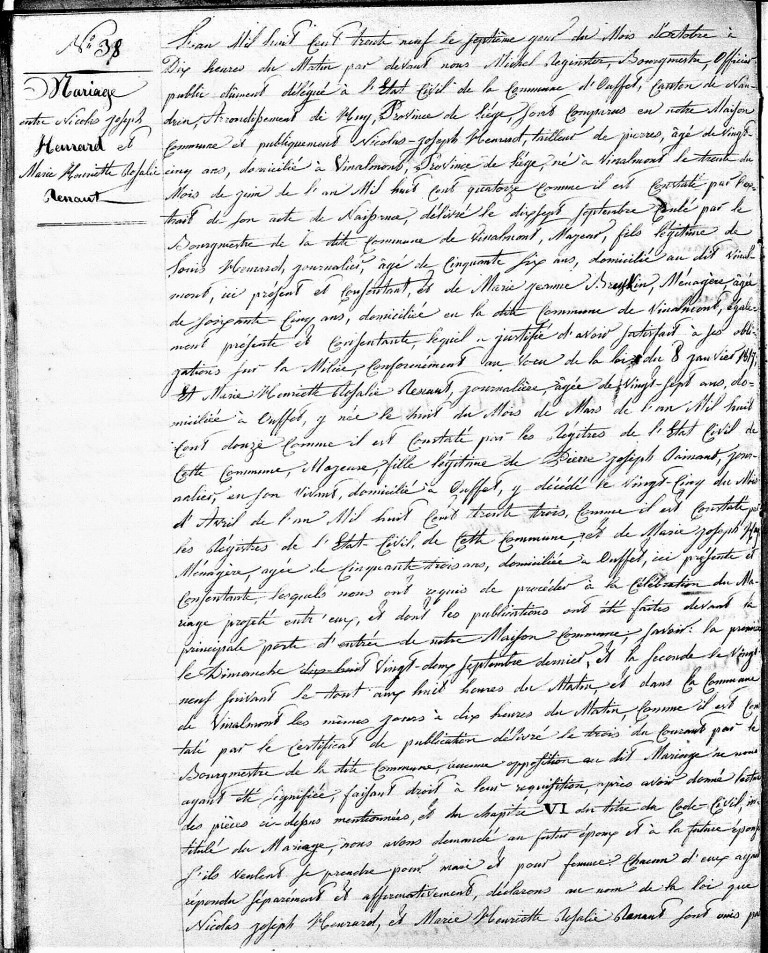 N° 38
Mariage
entre Nicolas Joseph
Henrard et
Marie Henriette Rosalie
Renant
L'an Mil huit Cent trente neuf le septième jour du Mois d'octobre à
Dix heures du Matin par devant nous Michel Reginster, Bourgmestre, Officier
public dument délégué à l'Etat Civil de la Commune d'Ouffet, Canton de Nan-
drin, Arrondissement de Huy, Province de Liége, sont Comparus en notre Maison
Commune et publiquement Nicolas-Joseph Henrard, tailleur de pierres, âgé de vingt-
cinq ans, domicilié à Vinalmont, Province de Liége, né à Vinalmont le trente du
Mois de juin de l'an Mil huit Cent quatorze comme il est Constaté par l'ex-
trait de son acte de Naissance délivré le dix sept Septembre Coulé par le
Bourgmestre de la dite Commune de Vinalmont, Majeur, fils légitime de
Louis Henrard, journalier, âgé de Cinquante Six ans, domicilié au dit Vinal-
mont, ici présent et Consentant, et de Marie Jeanne Ménagère, âgée
de Soixante Cinq ans, domiciliée en la dite Commune de Vinalmont, égale-
ment présente et Consentante, lequel a justifié d'avoir satisfait à ses obli-
gations sur la Milice, Conformément au voeu de la loi du 8 janvier 1817,
Et Marie Henriette Rosalie Renant, journalière, âgée de Vingt-Sept ans, do-
miciliée à Ouffet, y née le huit du Mois de Mars de l'an Mil huit
Cent douze comme il est Constaté par les Régitres de l'Etat Civil de
Cette Commune, Majeure, fille légitime de Pierre Joseph Rainant, jour-
nalier, en son vivant, domicilié à Ouffet, y décédé le Vingt-Cinq du Mois
d'Avril de l'an Mil huit Cent trente trois, Comme il est Constaté par
les Régitres de l'Etat Civil, de Cette Commune, et de Marie Joseph
Ménagère, âgée de Cinquante trois ans, domiciliée à Ouffet, ici présente et
Consentante, lesquels nous ont requis de procéder à la Célébration du Ma-
riage projeté entr'eux, et dont les publications ont été faites devant la
principale porte d'entrée de notre Maison Commune, Savoir: la première
le Dimanche dix huit Vingt-deux Septembre dernier, et la seconde le Vingt-
neuf suivant le tout aux huit heures du Matin, et dans la Commune
de Vinalmont les mêmes jours à dix heures du Matin, Comme il est Cons
taté par le Certificat de publication délivré le trois du Courant par le
Bourgmestre de la dite Commune, aucune opposition au dit Mariage ne nous
ayant été signifiée, faisant droit à leur requisition, après avoir donné lecture
des pièces ci dessus mentionnées, et du chapitre VI du titre du Code-Civil, in-
titulé du Mariage, nous avons demandé au futur époux et à la future épouse
s'ils veulent se prendre pour mari et pour femme: Chacun d'eux ayant
répondu séparément et affirmativement, déclarons au nom de la loi que
Nicolas Joseph Henrard, et Marie Henriette Rosalie Renant sont unis par